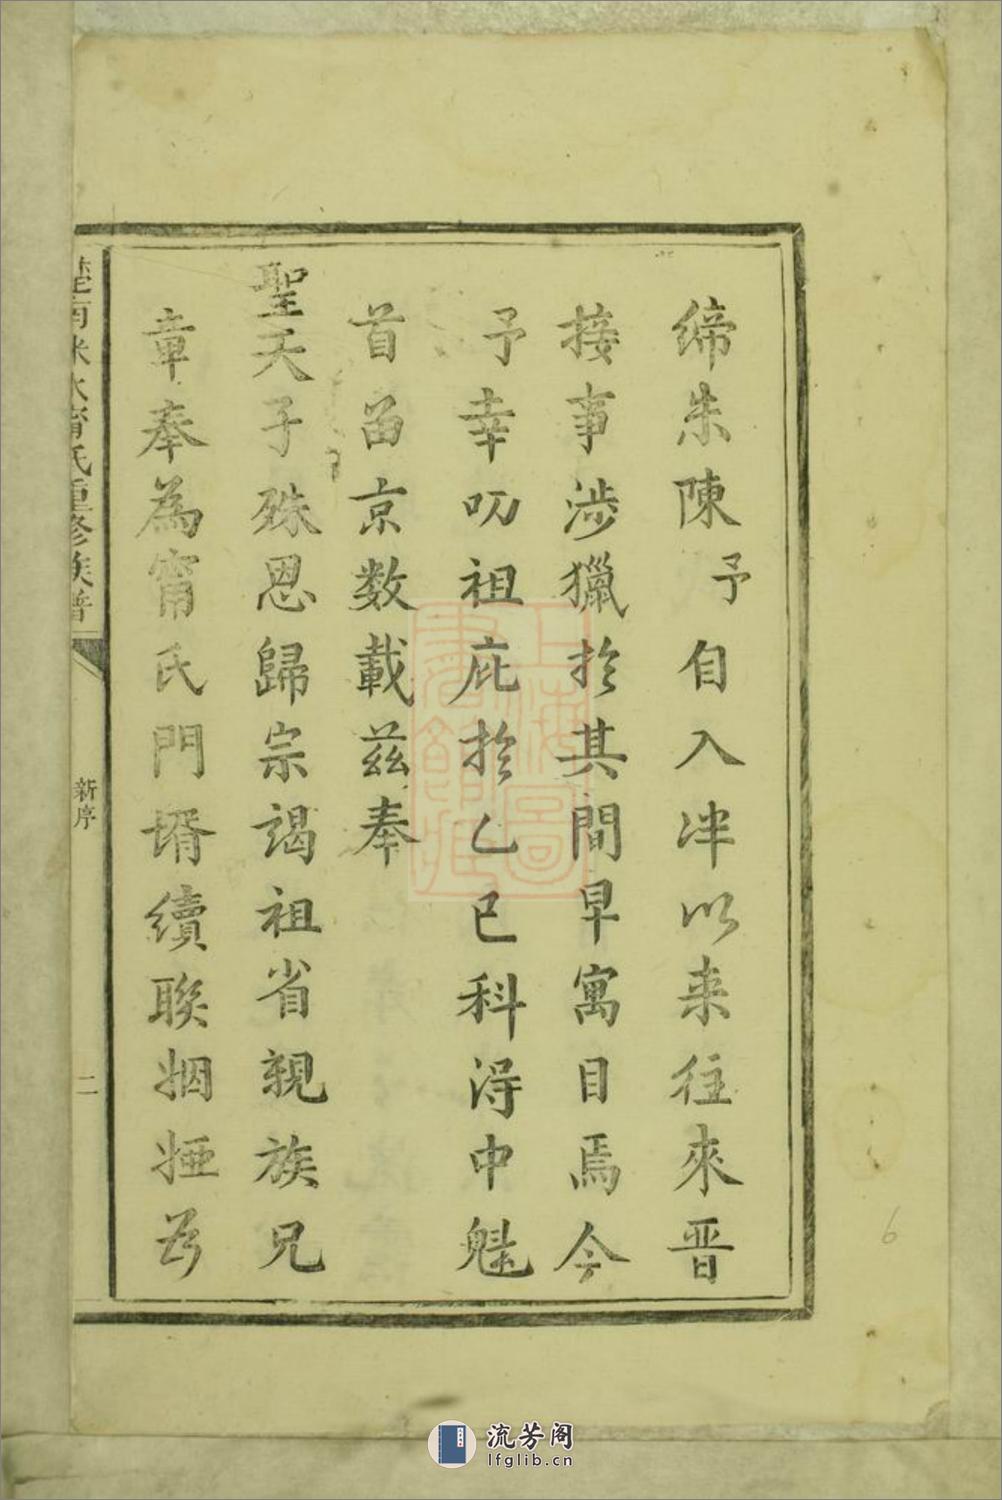 締朱陳予自入泮以来往來晋
接事涉獵扵其間早寓目焉今
予幸叨祖庇扵乙巳科淂中魁
首留京数載茲奉
聖天子殊恩歸宗謁祖省親族兄
章奉為甯氏門壻續聯姻婭為
楚南米水甯氏重修族譜
新序
二
6
上海圖書館藏
流芳阁
lfglib.cn